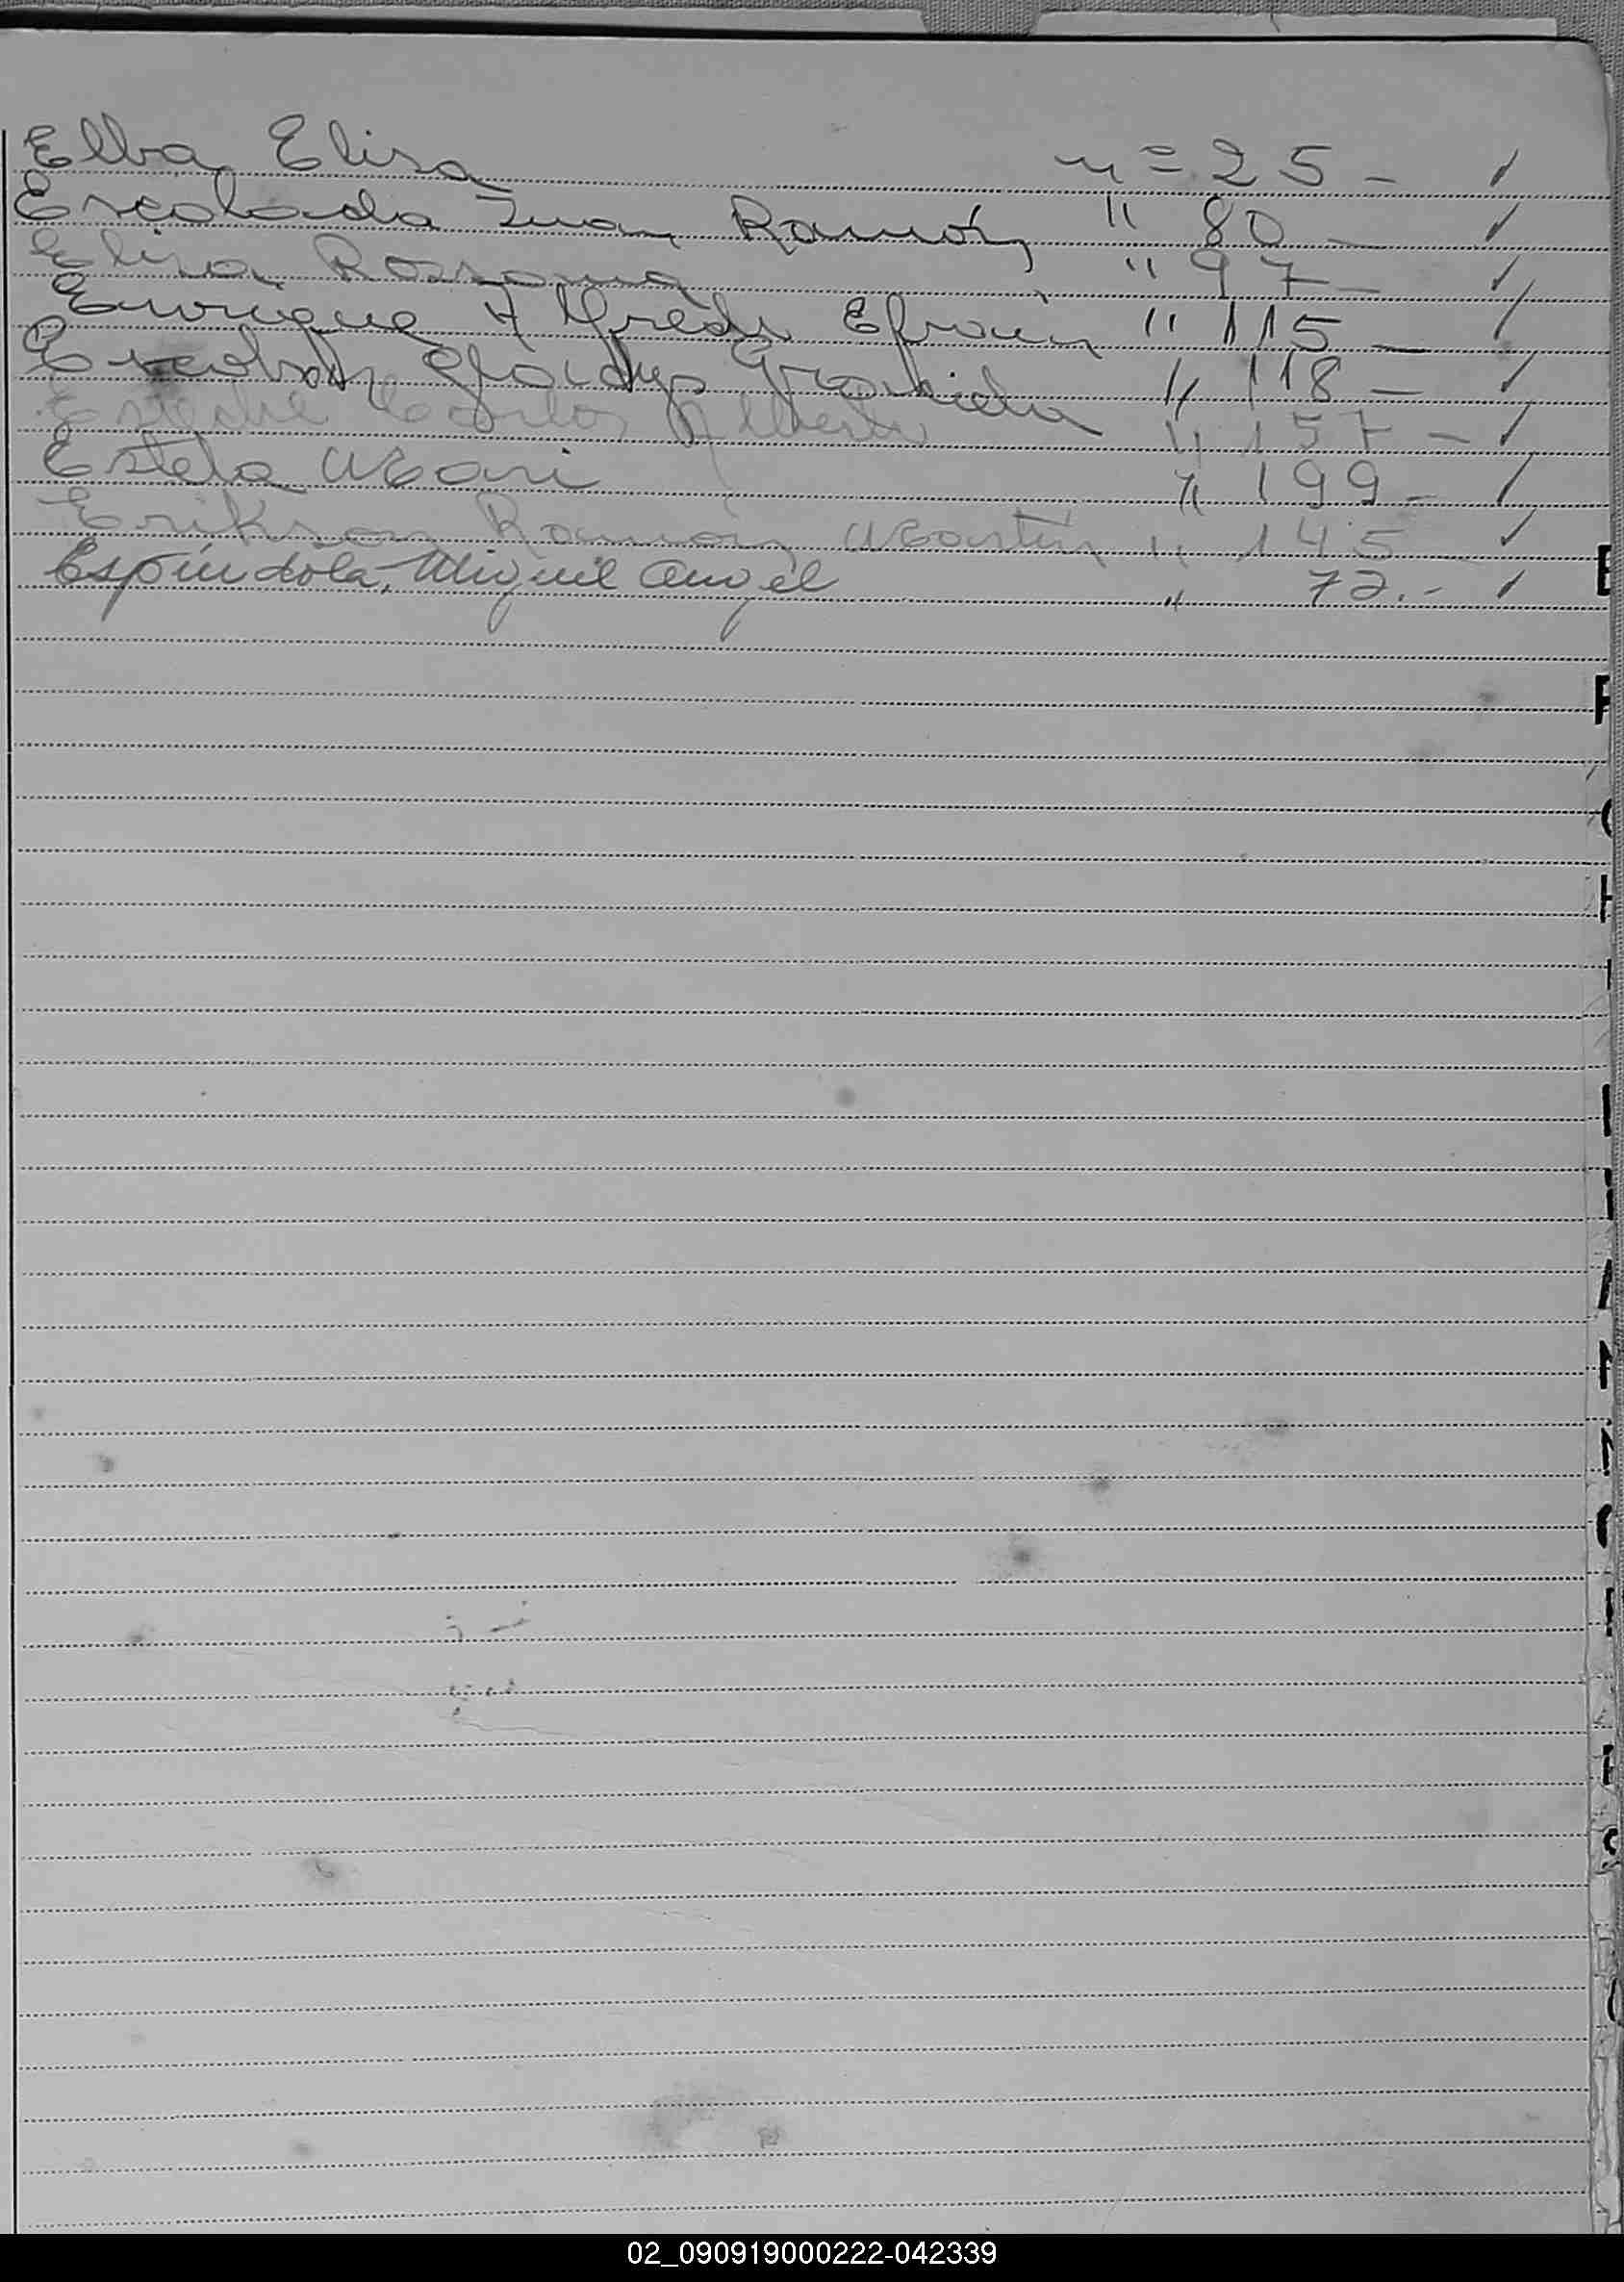 Elba Elisa n= 25 - ✓
Escobada Juan Ramón " 80 - ✓
Elisa Rossana " 97 - ✓
Enrique Alfredo Efraín " 115 - ✓
Escobar Gladys Graciela " 118 - ✓
Carlos Alberto " 157 - ✓
Estela Mari " 199 - ✓
Erikson Ramón Martín " 145 - ✓
Espíndola, Miguel Angel " 72.- ✓
E
F
H
I
02_090919000222-042339